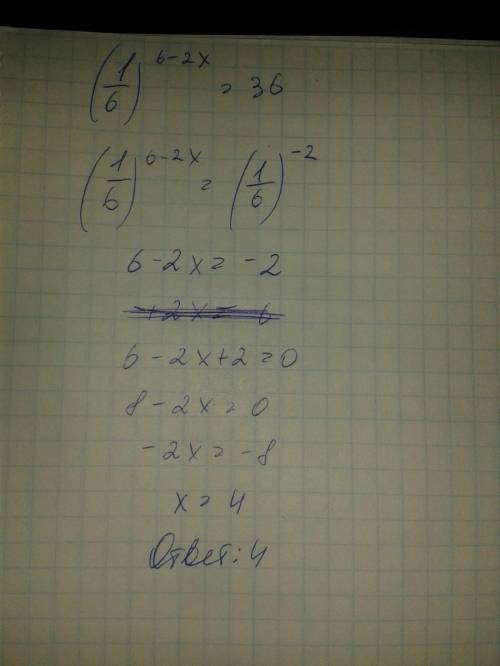 (1/6)^(6-2x) = 36
(1/6)^(6-2x) = (1/6)^(-2)
6-2x = -2
6-2x+2=0
8-2x=0
-2x=-8
x=4
Ответ: 4